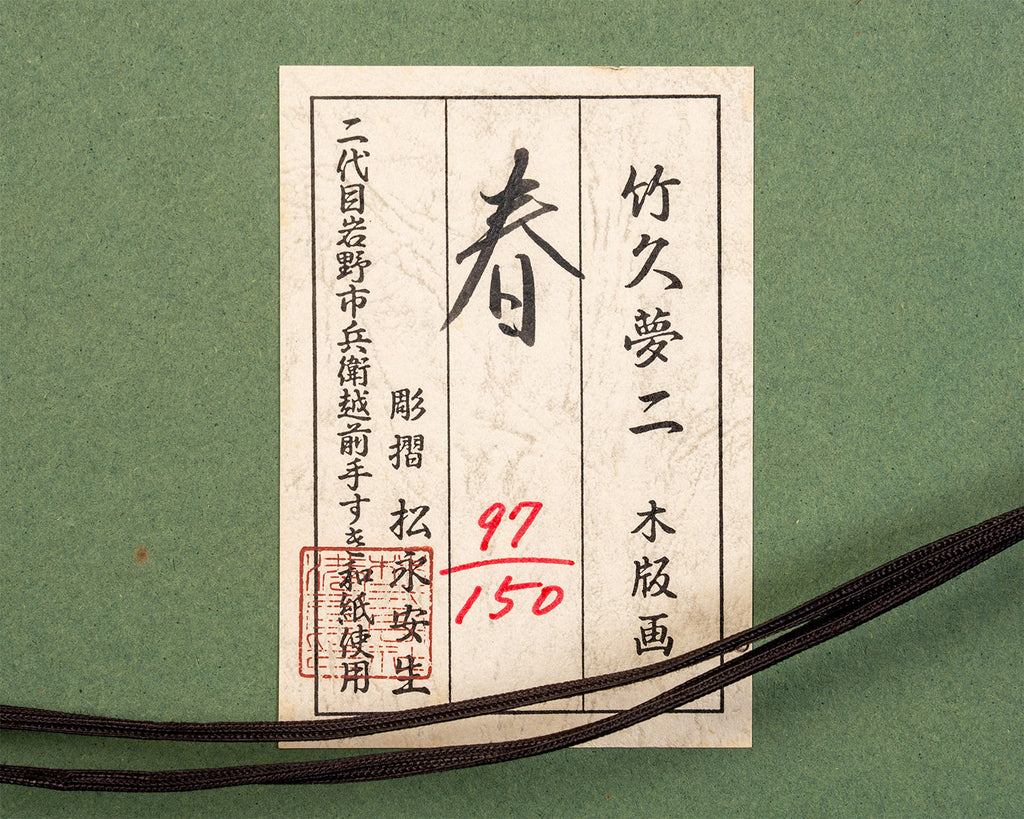 竹久夢二 木版画
春
97/150
彫摺 松永安生
二代目岩野市兵衛越前手すき和紙使用